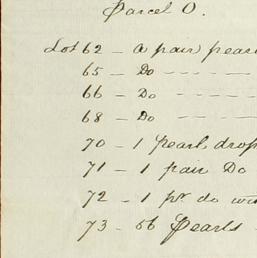 Parcel O.
Lot 62 - a pair pear
65 - Do - - - - -
66 - Do - - - -
68 - Do - - - -
70 - 1 pearl drop
71 - 1 pair Do
72 - 1 pr do wi
73 - 56 Pearls